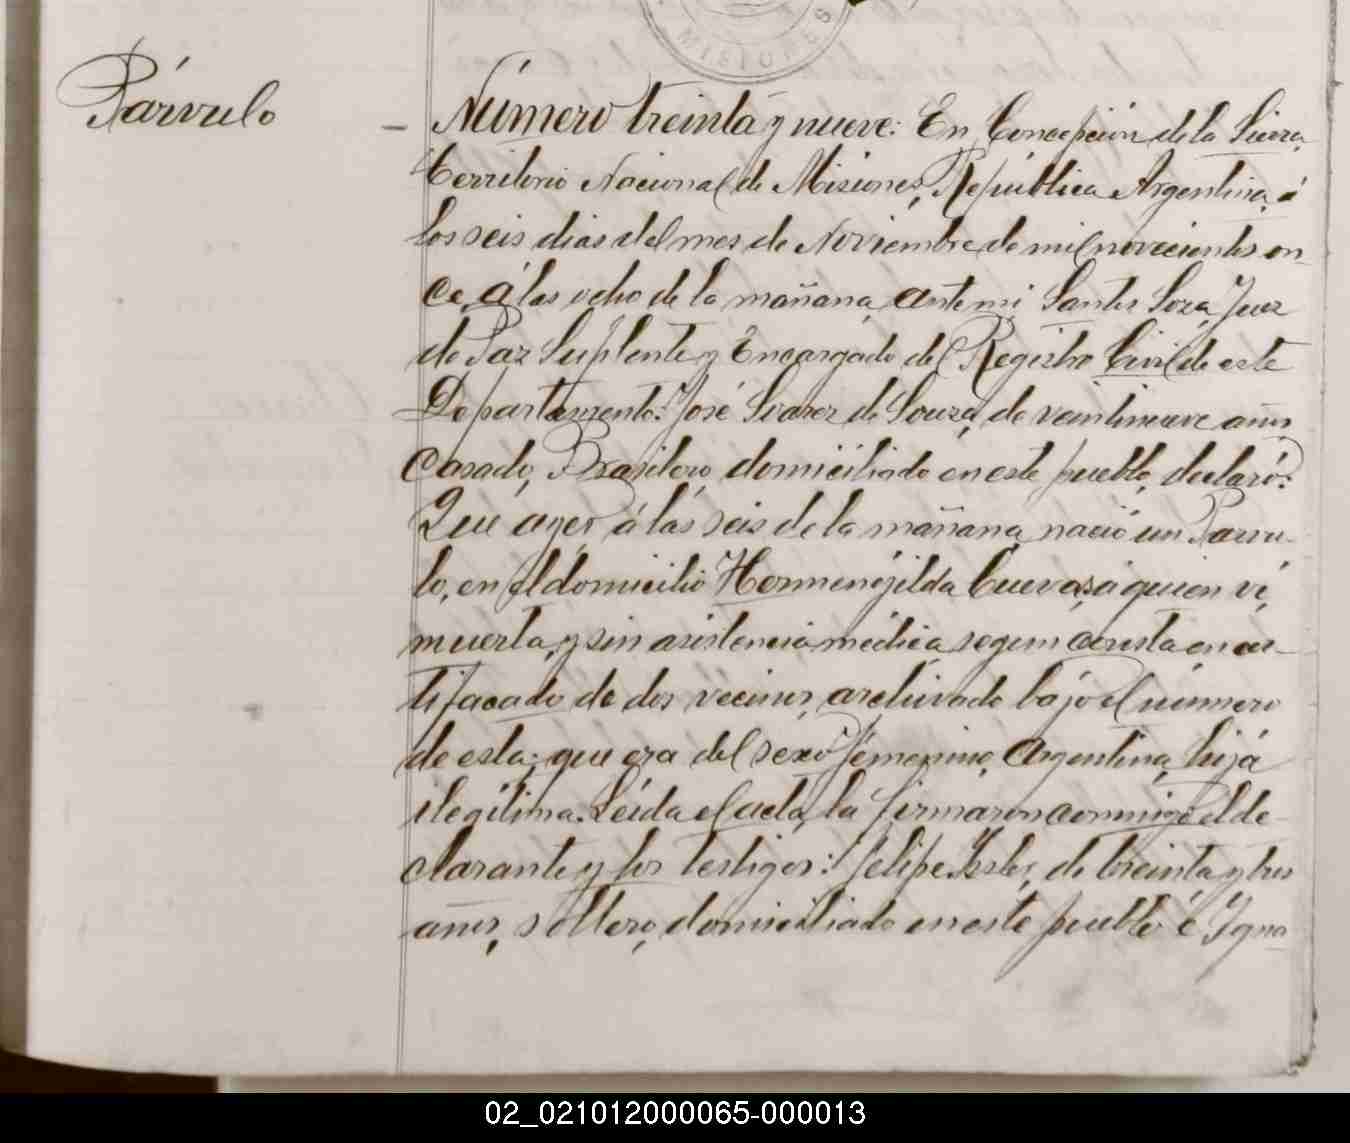 MISIONES
Párvulo
Número treinta y nueve: En Concepción de la Sierra,
Territorio Nacional de Misiones, República Argentina, á
los seis dias del mes de Noviembre de mil novecientos on-
ce, á las ocho de la mañana, ante mi Santos Loza, Juez
de Paz Suplente y Encargado del Registro Civil de este
Departamento: José Suarez de Souza, de veintinueve años,
Casado, Brasilero, domiciliado en este pueblo, declaró:
Que ayer á las seis de la mañana nació un Parvu-
lo, en el domicilio Hermenégilda Cuevas, á quien ví
muerta, y sin asistencia médica segun consta en cer-
tificado de dos vecinos, archivado bajo el número
de esta; que era del sexo femenino, Argentina, hija
ilegítima. Leida el acta, la firmaron conmigo el de-
clarante y los testigos: Felipe, de treinta y tres
años, soltero, domiciliado en este pueblo é Igna
02_021012000065-000013